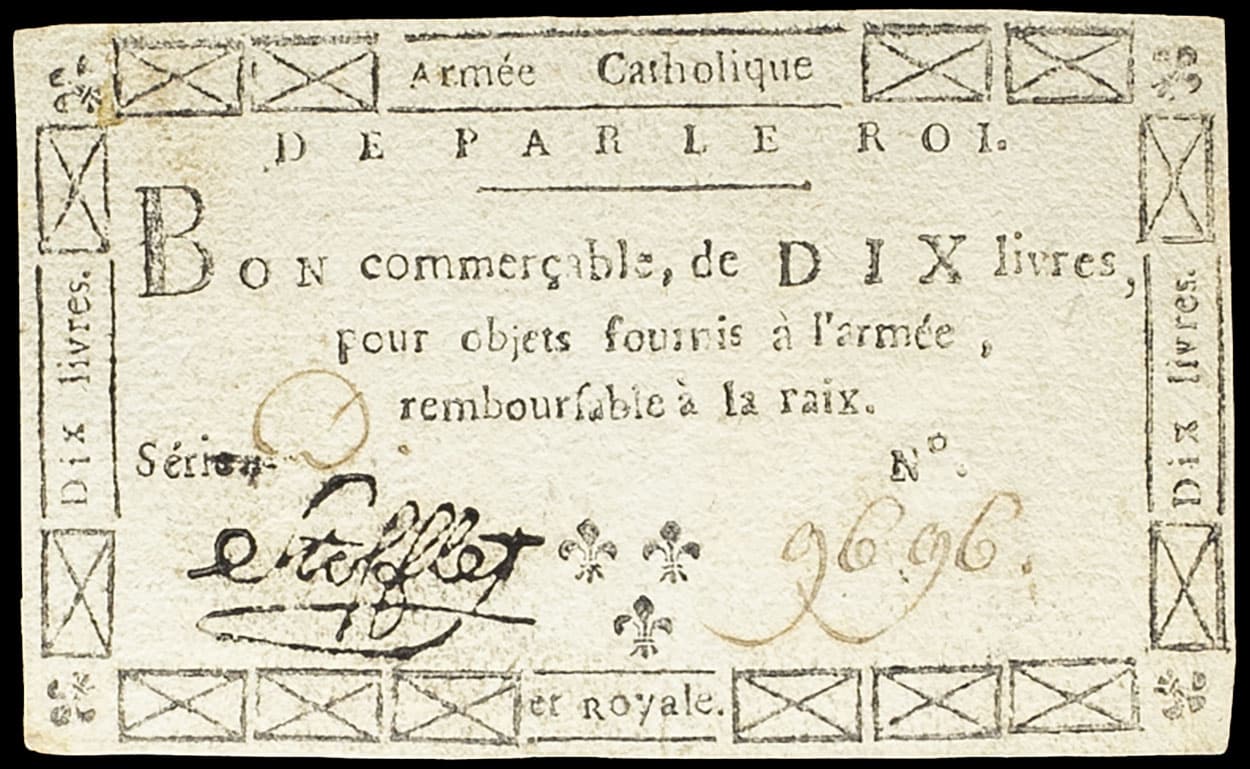 Armée Catholique
DE PAR LE ROI.
BON commerçable, de DIX livres,
pour objets fournis à l'armée,
remboursable à la paix.
Série D.
N°. 9696.
Stofflet
et Royale.
Dix livres.
Dix livres.